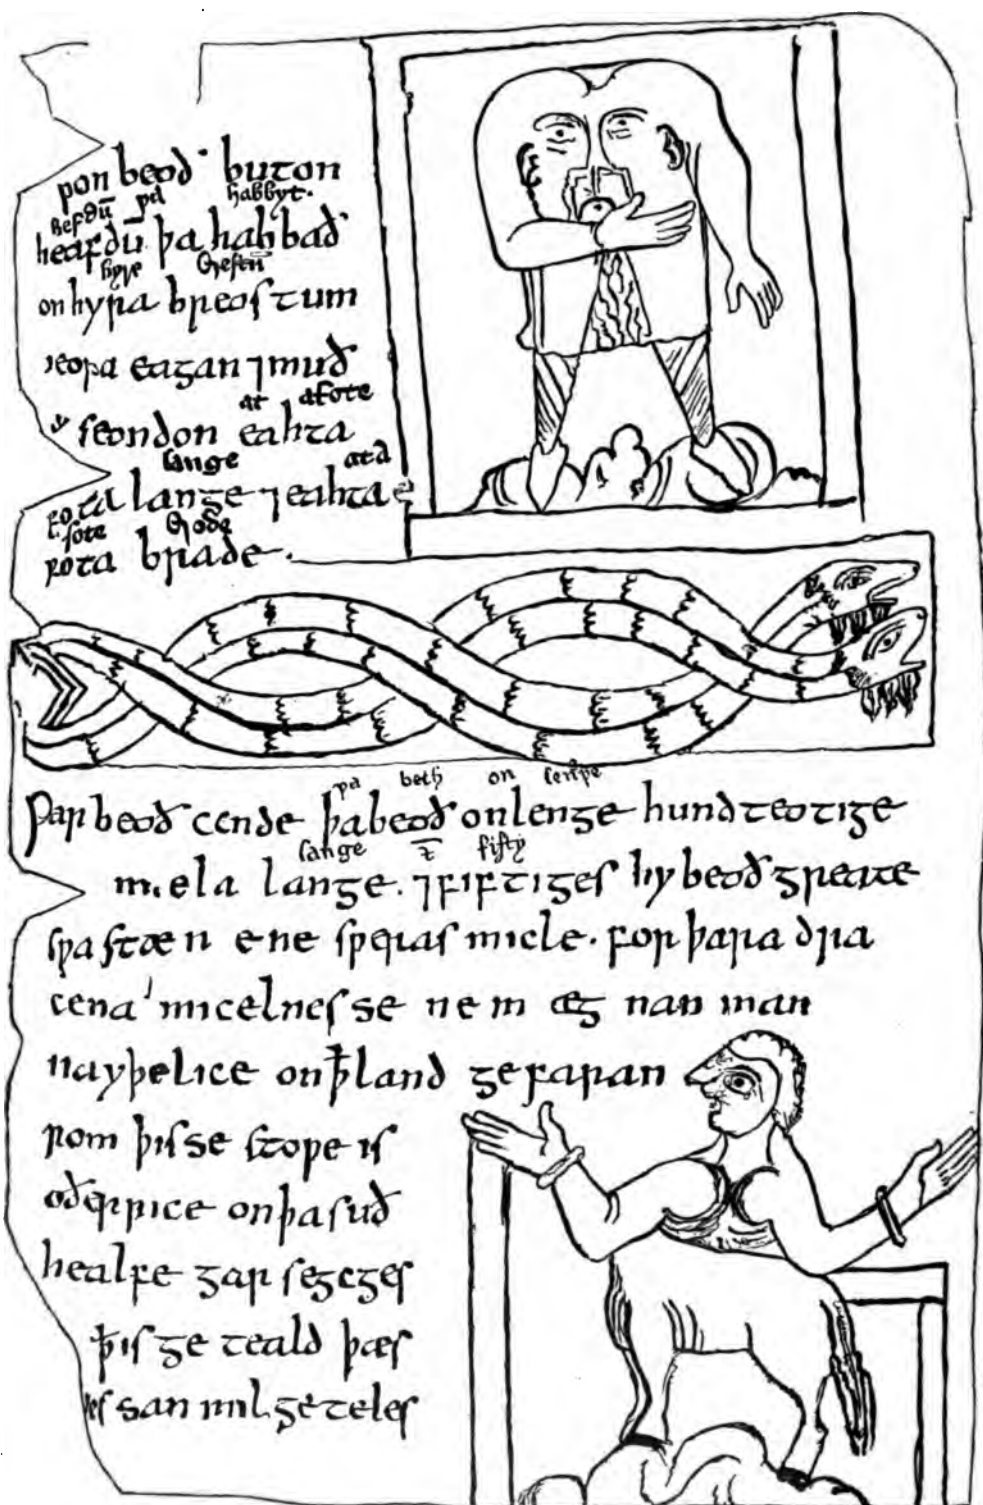 ƿon beoð buton
hefdū þa habbyt.
heafdū þa habbað
hyre brestū
on hyra breostum
heora eagan ⁊ muð
at afote
seondon eahta
lange ata
fota lange ⁊ eahta
fote brode
fota brade.
þa beth on lenþe
Þar beoð cende þa beoð on lenge hundteotige
lange ⁊ fifty
mela lange. ⁊ fiftiges hy beoð greate
sƿa stænene sƿeras micle. for þara dra
cena micelnesse ne mæg nan man
nayþelice on ꝥ land gefaran
rom þisse stoƿe is
oðer rice on þa suð
healfe garsegges
ꝥ is geteald þæs
les san mil geteles